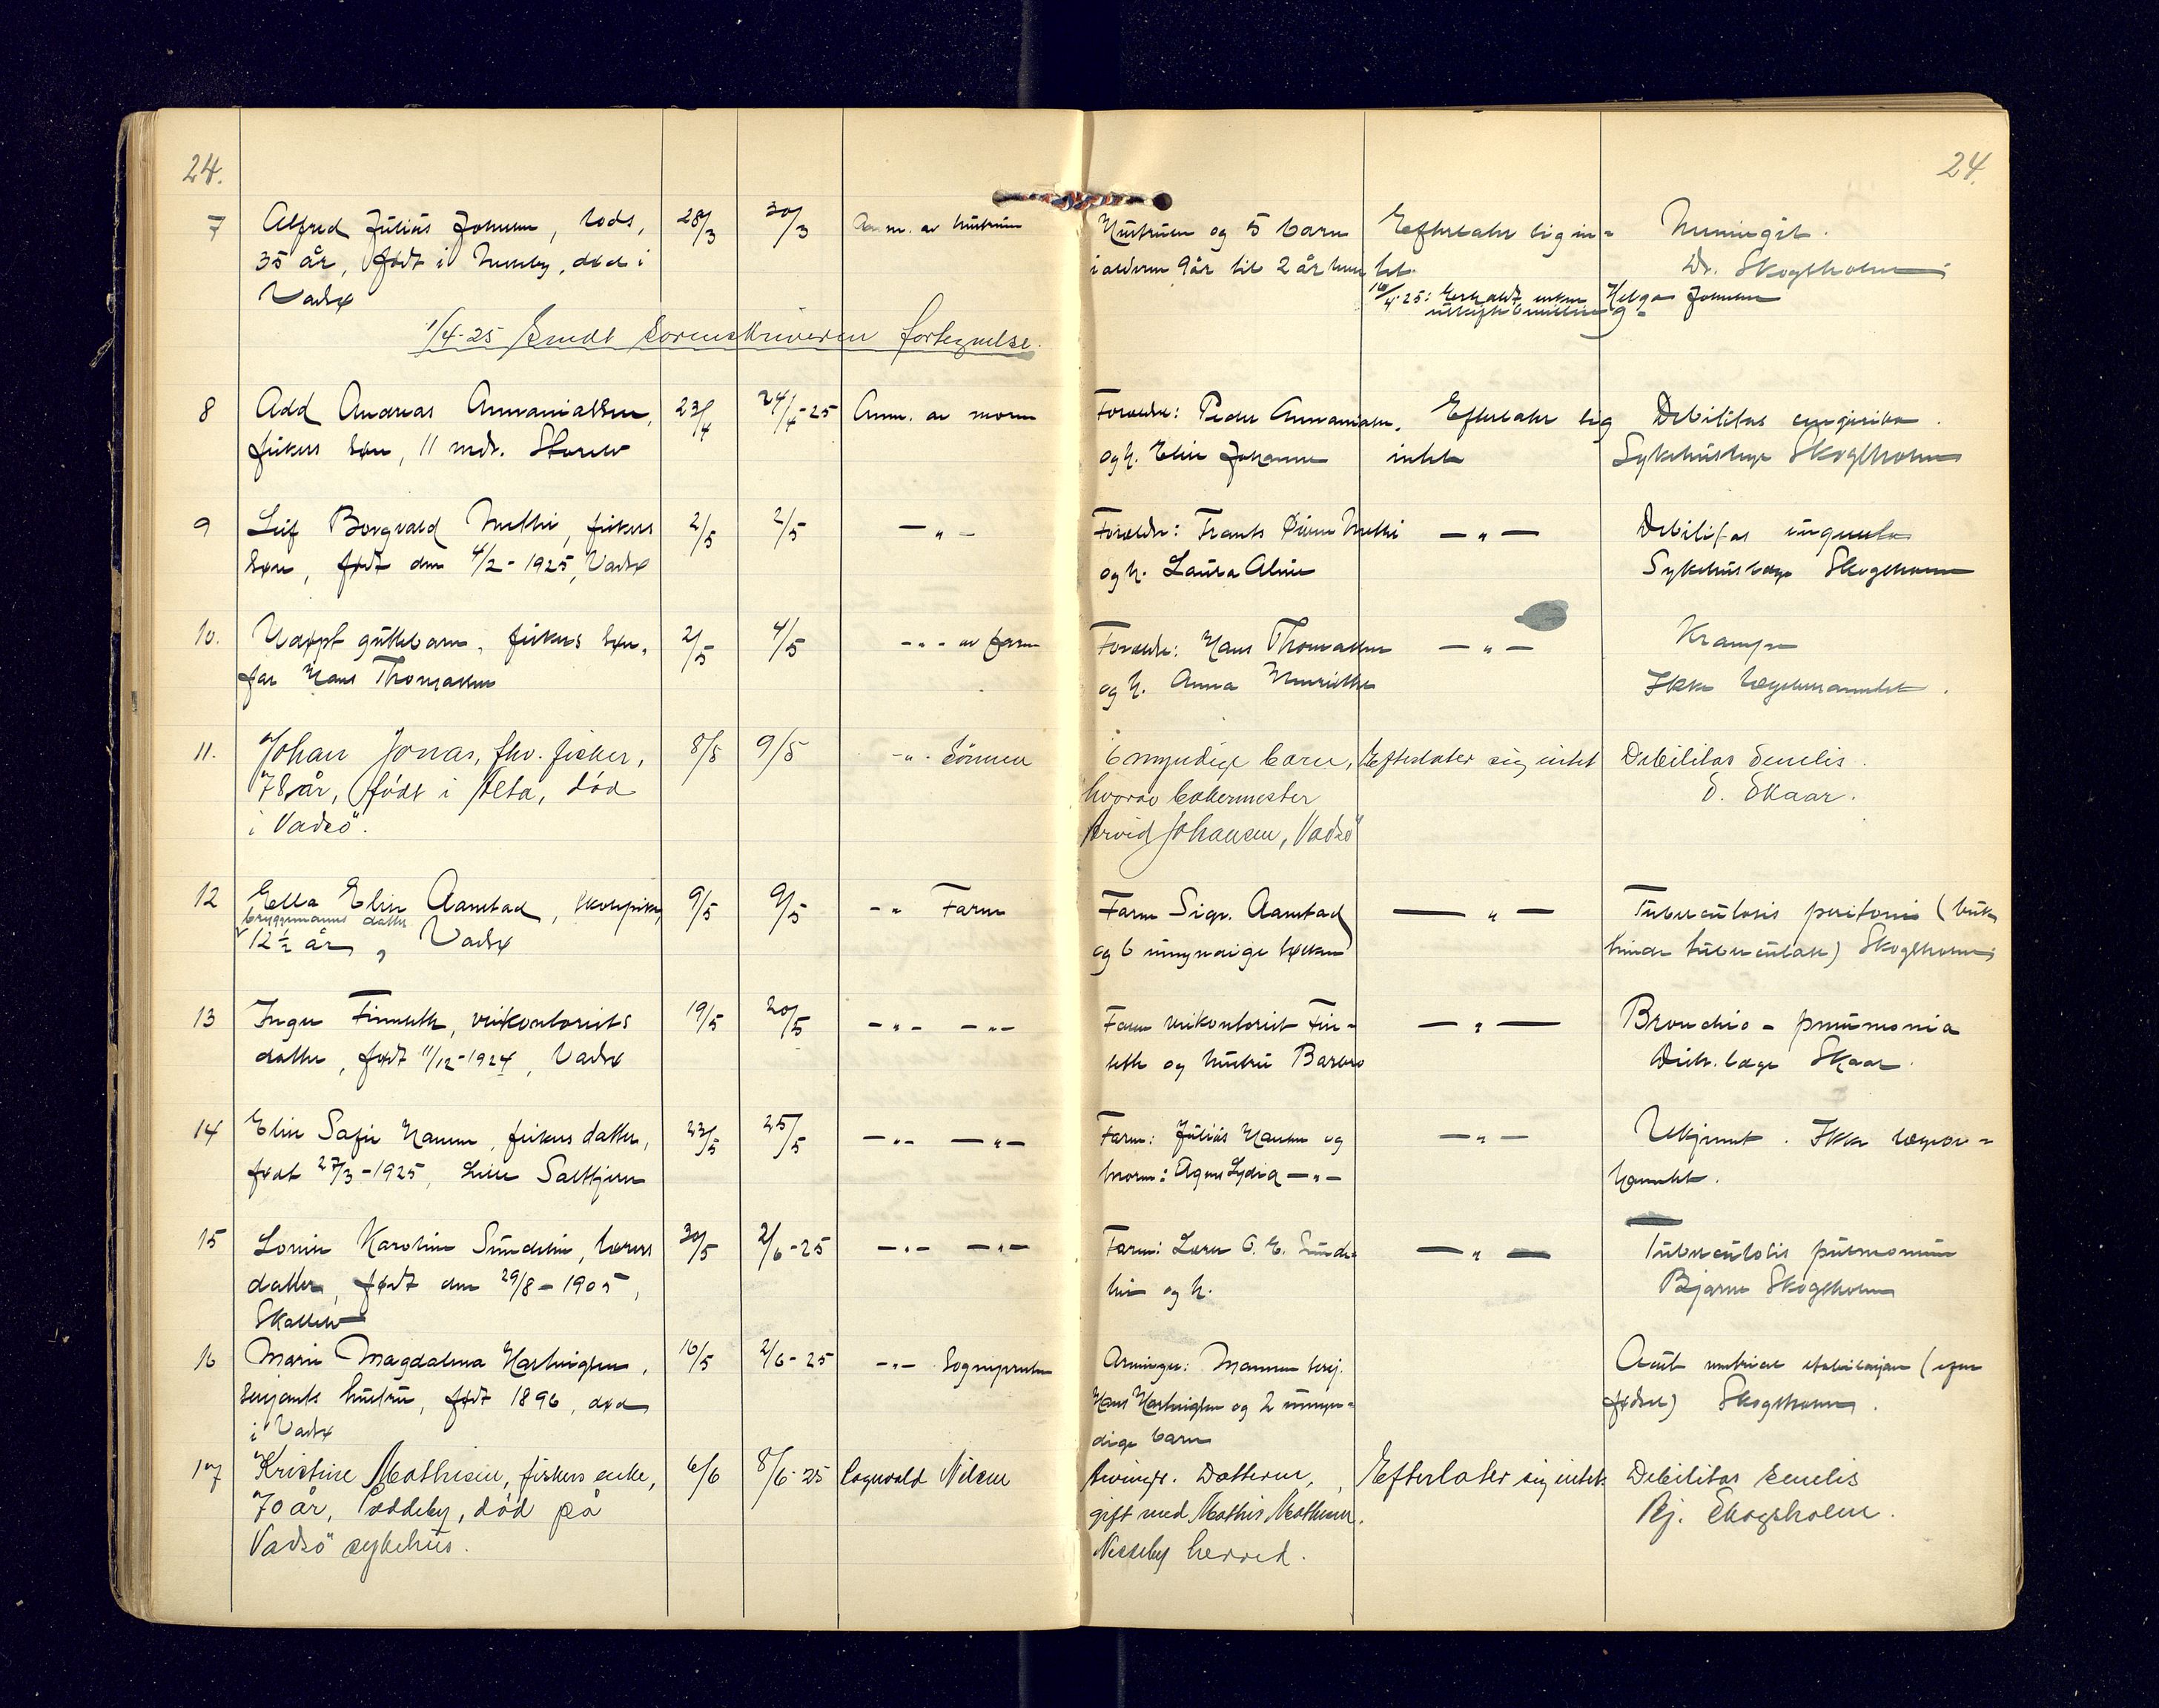 24.
24.
7 Alfred Julius Johnsen, lods, 28/3 30/3 Anm. av hustruen Hustruen og 5 barn Efterlater sig in- Meningit.
35 år, født i Nesseby, død i i alderen 9 år til 2 år tet. Dr. Skogsholm
Vadsø 16/4-25: Helga Johnsen
1/4-25 Sendt sorenskriveren fortegnelse.
8 Add Andreas Annaniassen, 23/4 24/4-25 Anm. av moren Forældre: Peder Annaniassen, Efterlater sig Debilitas
fiskers søn, 11 mdr. Storelv og h. Elin Johanne intet Sykehuslæge Skogsholm
9 Leif Borgvald Methi, fiskers 2/5 2/5 — " — Forældre: Frants Methi — " — Debilitas
søn, født den 4/2-1925, Vadsø og h. Laura Aline Sykehuslæge Skogsholm
10. Udøpt guttebarn, fiskers søn, 2/5 4/5 - " - av faren Forældre: Hans Thomassen — " — Krampe
far Hans Thomassen og h. Anna Ikke lægebehandlet.
11. Johan Jonas, fhv. fisker, 8/5 9/5 - " - Sönnen 6 myndige barn, Efterlater sig intet Debilitas senelis.
78 år, född i Alta, död hvorav bakermester S. Skaar.
i Vadsö. Arvid Johansen, Vadsö
12 Ella Elin Aamstad, skolepike, 9/5 9/5 - " Faren Faren Sigv. Aamstad — " — Tuberculosis peritoni (buk-
bryggemanns datter
12½ år, Vadsø og 6 umyndige søsken hinde tuberculose) Skogsholm
13 Inger Finseth, veikontorists 19/5 20/5 - " - - " - Faren veikontorist Fin- — " — Bronchio-pneumonia
datter, født 11/12-1924, Vadsø seth og hustru Barbro Distr. læge Skaar.
14 Elin Sofie Hansen, fiskers datter, 23/5 25/5 — " — — " — Faren: Julius Hansen og — " — Ukjent. Ikke lægebe-
født 27/3-1925, Lille Saltjern moren: Agnes Lydia — " — handlet.
15 Lovise Karoline Sundelin, lærers 30/5 2/6-25 — " — — " — Faren: Lærer O. E. Sunde- — " — Tuberculosis pulmonum
datter, født den 29/8-1905, lin og h. Bjarne Skogsholm
Skallelv
16 Marie Magdalena Hartvigsen, 16/5 2/6-25 - " - Sogneprest Arvinger: Mannen serj. Acut (efter
serjants hustru, født 1896, død Hans Hartvigsen og 2 umyn- fødsel) Skogsholm.
i Vadsø dige barn
17 Kristine Mathisen, fiskers enke, 6/6 8/6-25 Ragnvald Nilsen Arvinge. Datteren, Efterlater sig intet. Debilitas senelis
70 år, Paddeby, död på gift med Mathis Mathisen, Bj. Skogsholm.
Vadsö sykehus. Nesseby herred.